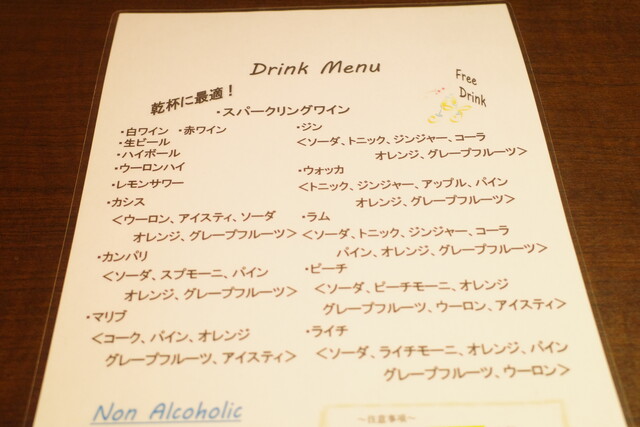 Drink Menu
Free
Drink
乾杯に最適！
・スパークリングワイン
・白ワイン ・赤ワイン
・生ビール
・ハイボール
・ウーロンハイ
・レモンサワー
・カシス
<ウーロン、アイスティ、ソーダ
オレンジ、グレープフルーツ>
・カンパリ
<ソーダ、スプモーニ、パイン
オレンジ、グレープフルーツ>
・マリブ
<コーク、パイン、オレンジ
グレープフルーツ、アイスティ>
・ジン
<ソーダ、トニック、ジンジャー、コーラ
オレンジ、グレープフルーツ>
・ウォッカ
<トニック、ジンジャー、アップル、パイン
オレンジ、グレープフルーツ>
・ラム
<ソーダ、トニック、ジンジャー、コーラ
パイン、オレンジ、グレープフルーツ>
・ピーチ
<ソーダ、ピーチモーニ、オレンジ
グレープフルーツ、ウーロン、アイスティ>
・ライチ
<ソーダ、ライチモーニ、オレンジ、パイン
グレープフルーツ、ウーロン>
Non Alcoholic
～注意事項～